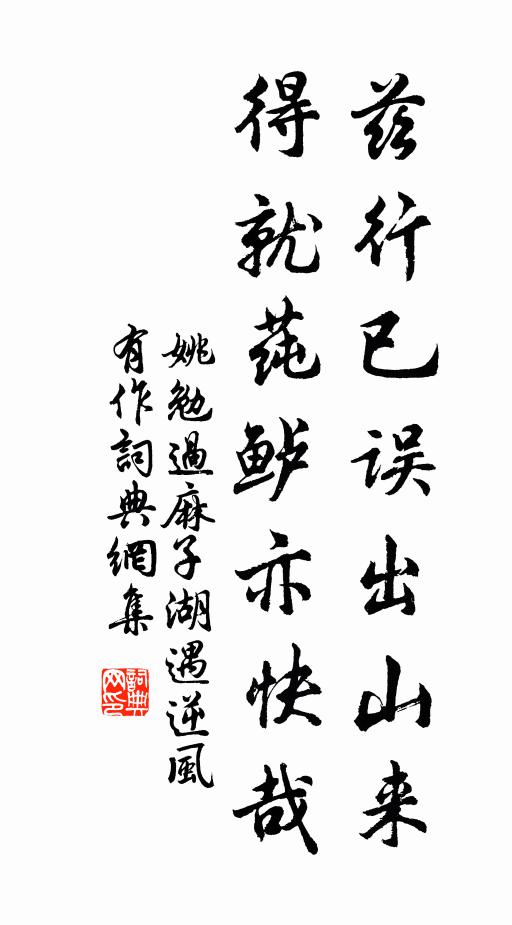 兹行已误出山来
得就莼鲈亦快哉
姚勉過麻子湖遇逆風
有作詞典網集
詞典网印